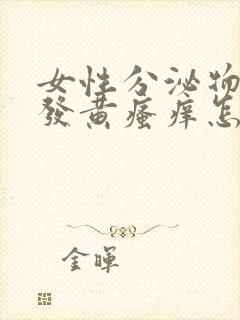 女性分泌物
發黄瘙痒怎
金暉